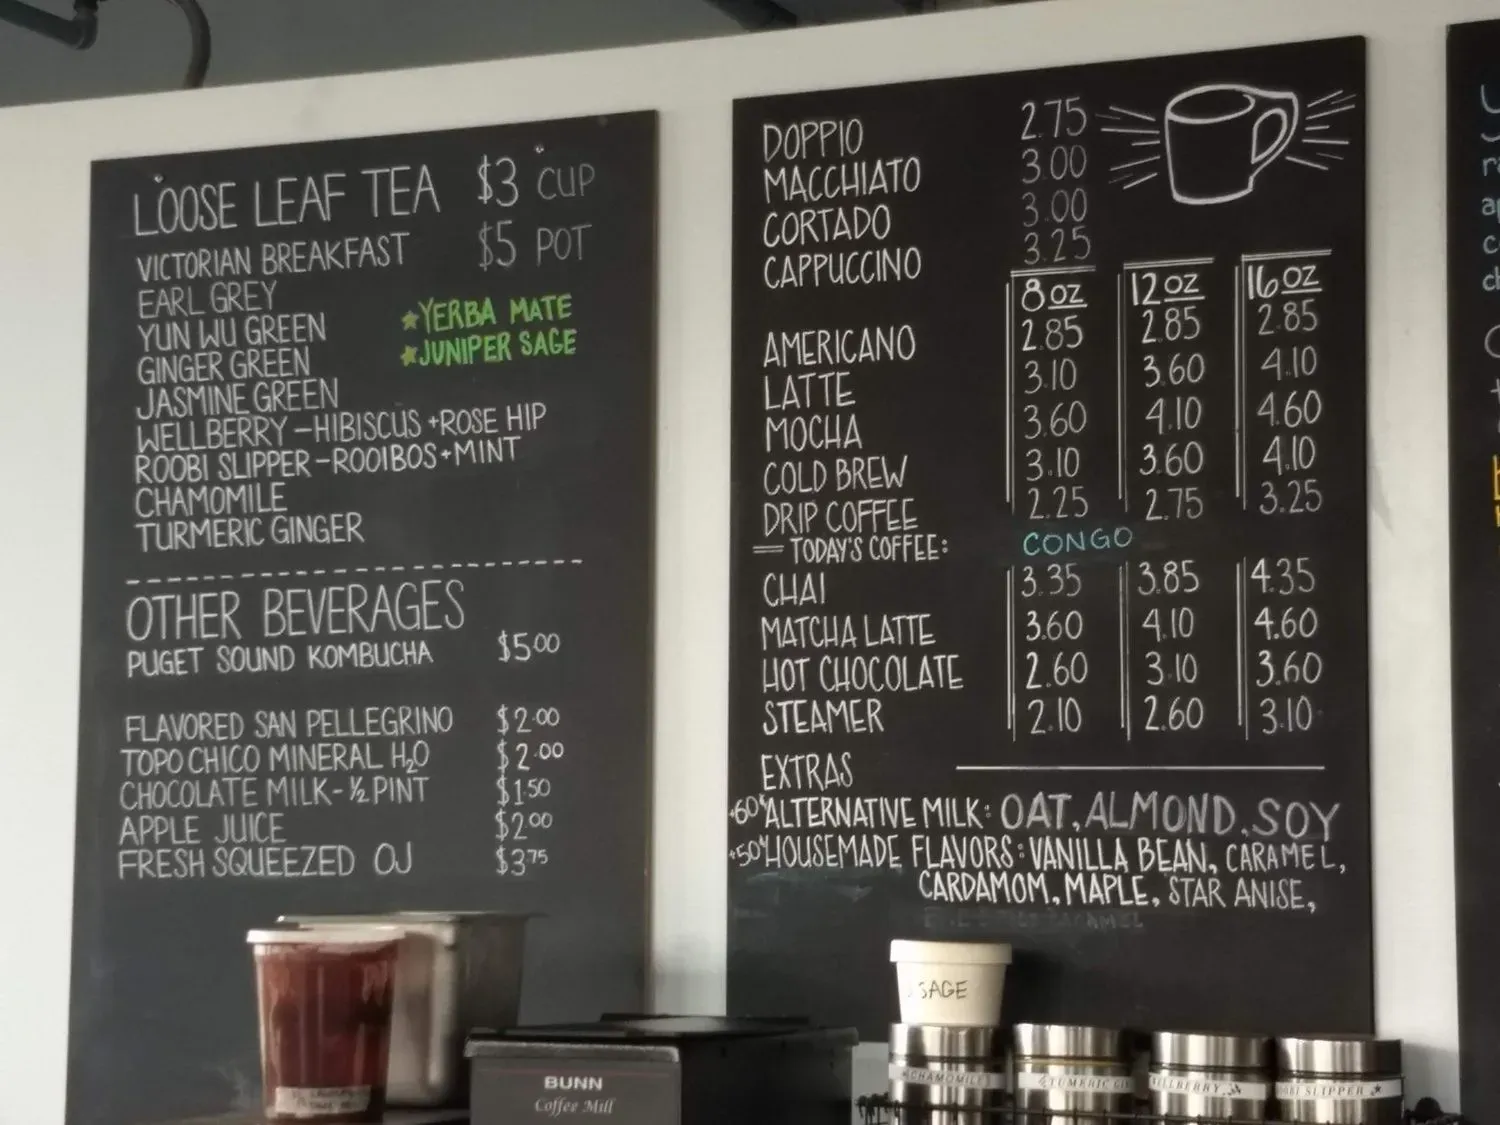 LOOSE LEAF TEA $3 CUP
$5 POT
VICTORIAN BREAKFAST
EARL GREY
YUN WU GREEN
GINGER GREEN
JASMINE GREEN
WELLBERRY - HIBISCUS + ROSE HIP
ROOBI SLIPPER - ROOIBOS + MINT
CHAMOMILE
TURMERIC GINGER
★YERBA MATE
★JUNIPER SAGE
OTHER BEVERAGES
PUGET SOUND KOMBUCHA $5.00
FLAVORED SAN PELLEGRINO $2.00
TOPO CHICO MINERAL H₂O $2.00
CHOCOLATE MILK - ½ PINT $1.50
APPLE JUICE $2.00
FRESH SQUEEZED OJ $3.75
DOPPIO 2.75
MACCHIATO 3.00
CORTADO 3.00
CAPPUCCINO 3.25
8 oz 12 oz 16 oz
AMERICANO 2.85 2.85 2.85
LATTE 3.10 3.60 4.10
MOCHA 3.60 4.10 4.60
COLD BREW 3.10 3.60 4.10
DRIP COFFEE 2.25 2.75 3.25
TODAY'S COFFEE: CONGO
CHAI 3.35 3.85 4.35
MATCHA LATTE 3.60 4.10 4.60
HOT CHOCOLATE 2.60 3.10 3.60
STEAMER 2.10 2.60 3.10
EXTRAS
+60¢ ALTERNATIVE MILK: OAT, ALMOND, SOY
+50¢ HOUSEMADE FLAVORS: VANILLA BEAN, CARAMEL,
CARDAMOM, MAPLE, STAR ANISE,
SAGE
BUNN
Coffee Mill
CHAMOMILE
TUMERIC
WELLBERRY
SLIPPER